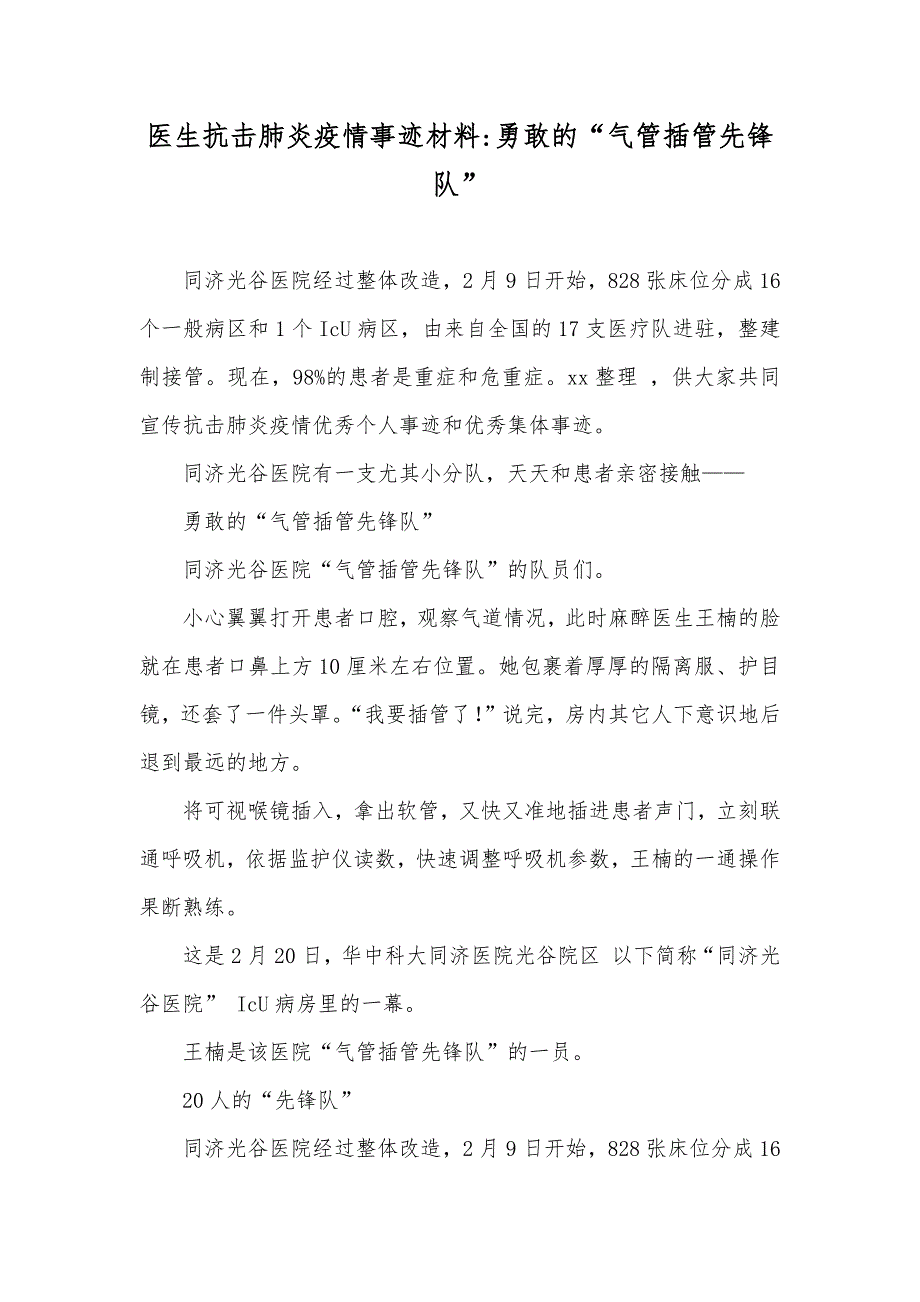 医生抗击肺炎疫情事迹材料:勇敢的“气管插管先锋
队”
同济光谷医院经过整体改造，2 月 9 日开始，828 张床位分成 16
个一般病区和 1 个 IcU 病区，由来自全国的 17 支医疗队进驻，整建
制接管。现在，98%的患者是重症和危重症。xx 整理 ，供大家共同
宣传抗击肺炎疫情优秀个人事迹和优秀集体事迹。
同济光谷医院有一支尤其小分队，天天和患者亲密接触——
勇敢的“气管插管先锋队”
同济光谷医院“气管插管先锋队”的队员们。
小心翼翼打开患者口腔，观察气道情况，此时麻醉医生王楠的脸
就在患者口鼻上方 10 厘米左右位置。她包裹着厚厚的隔离服、护目
镜，还套了一件头罩。“我要插管了！”说完，房内其它人下意识地后
退到最远的地方。
将可视喉镜插入，拿出软管，又快又准地插进患者声门，立刻联
通呼吸机，依据监护仪读数，快速调整呼吸机参数，王楠的一通操作
果断熟练。
这是 2 月 20 日，华中科大同济医院光谷院区 以下简称“同济光
谷医院” IcU 病房里的一幕。
王楠是该医院“气管插管先锋队”的一员。
20 人的“先锋队”
同济光谷医院经过整体改造，2 月 9 日开始，828 张床位分成 16